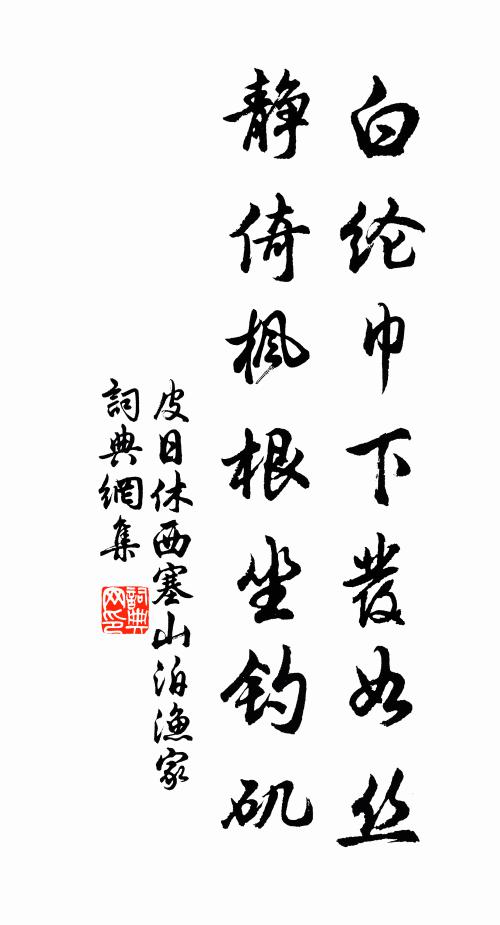 白纶巾下發如丝
静倚楓根坐钓矶
皮日休西塞山泊渔家
詞典網集
詞典
网印